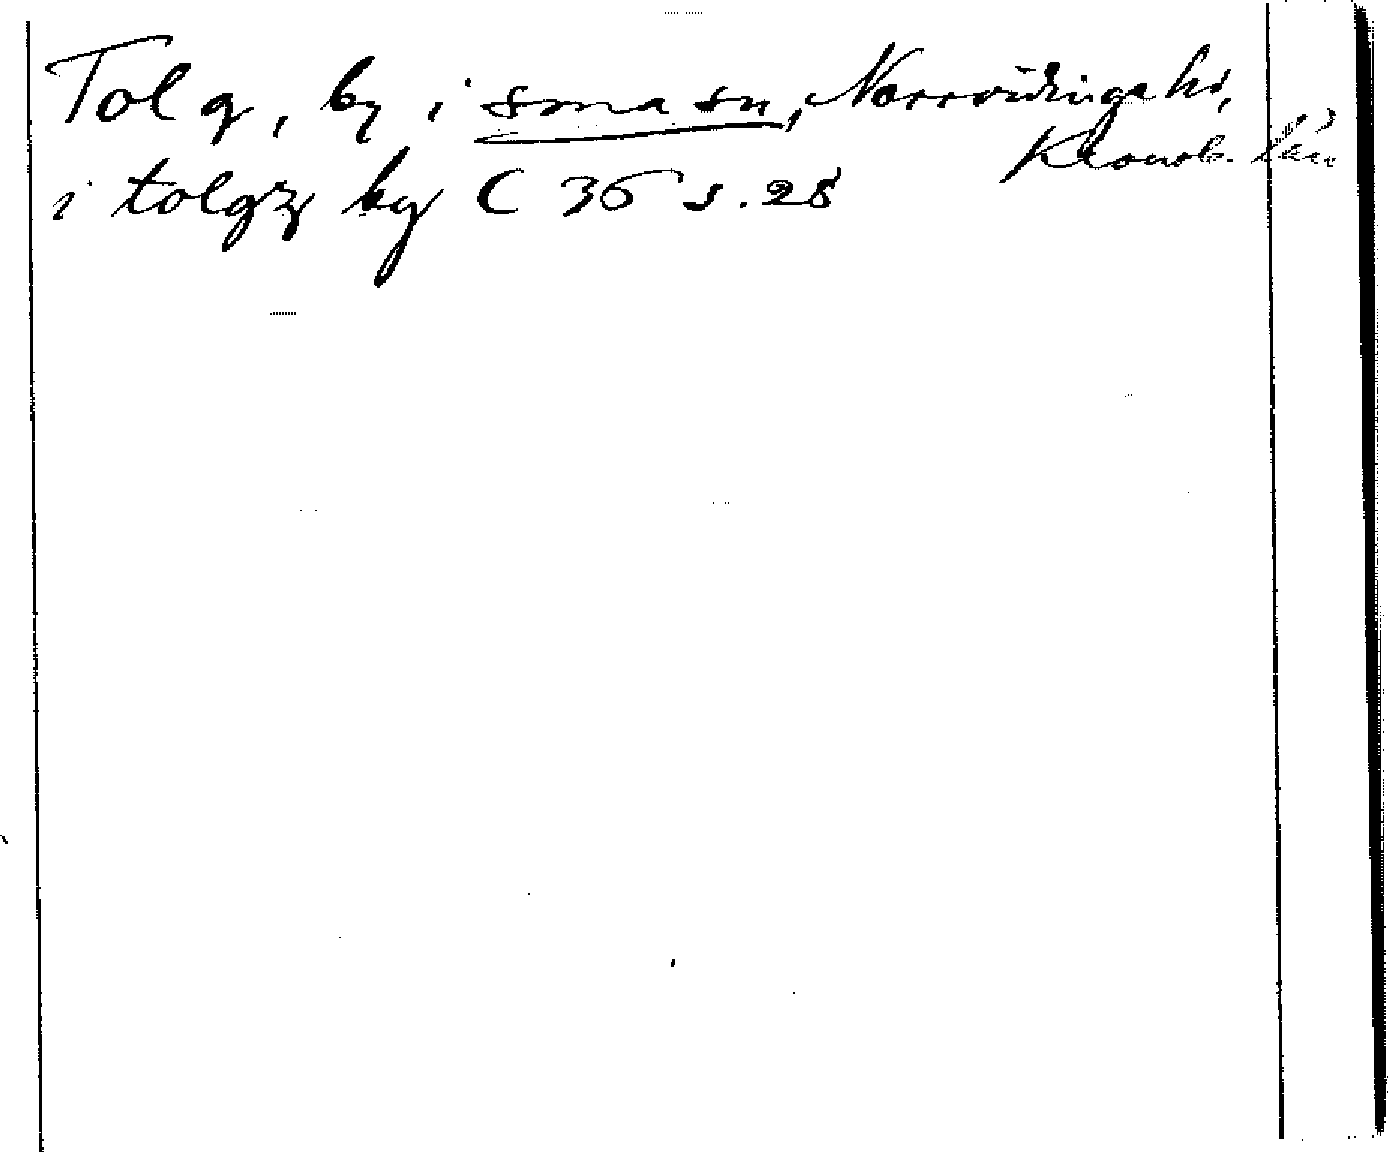 Tolg, by i sma sn, Norrvidinge hd,
Kronob. län
i tolgz by C 35 s. 28